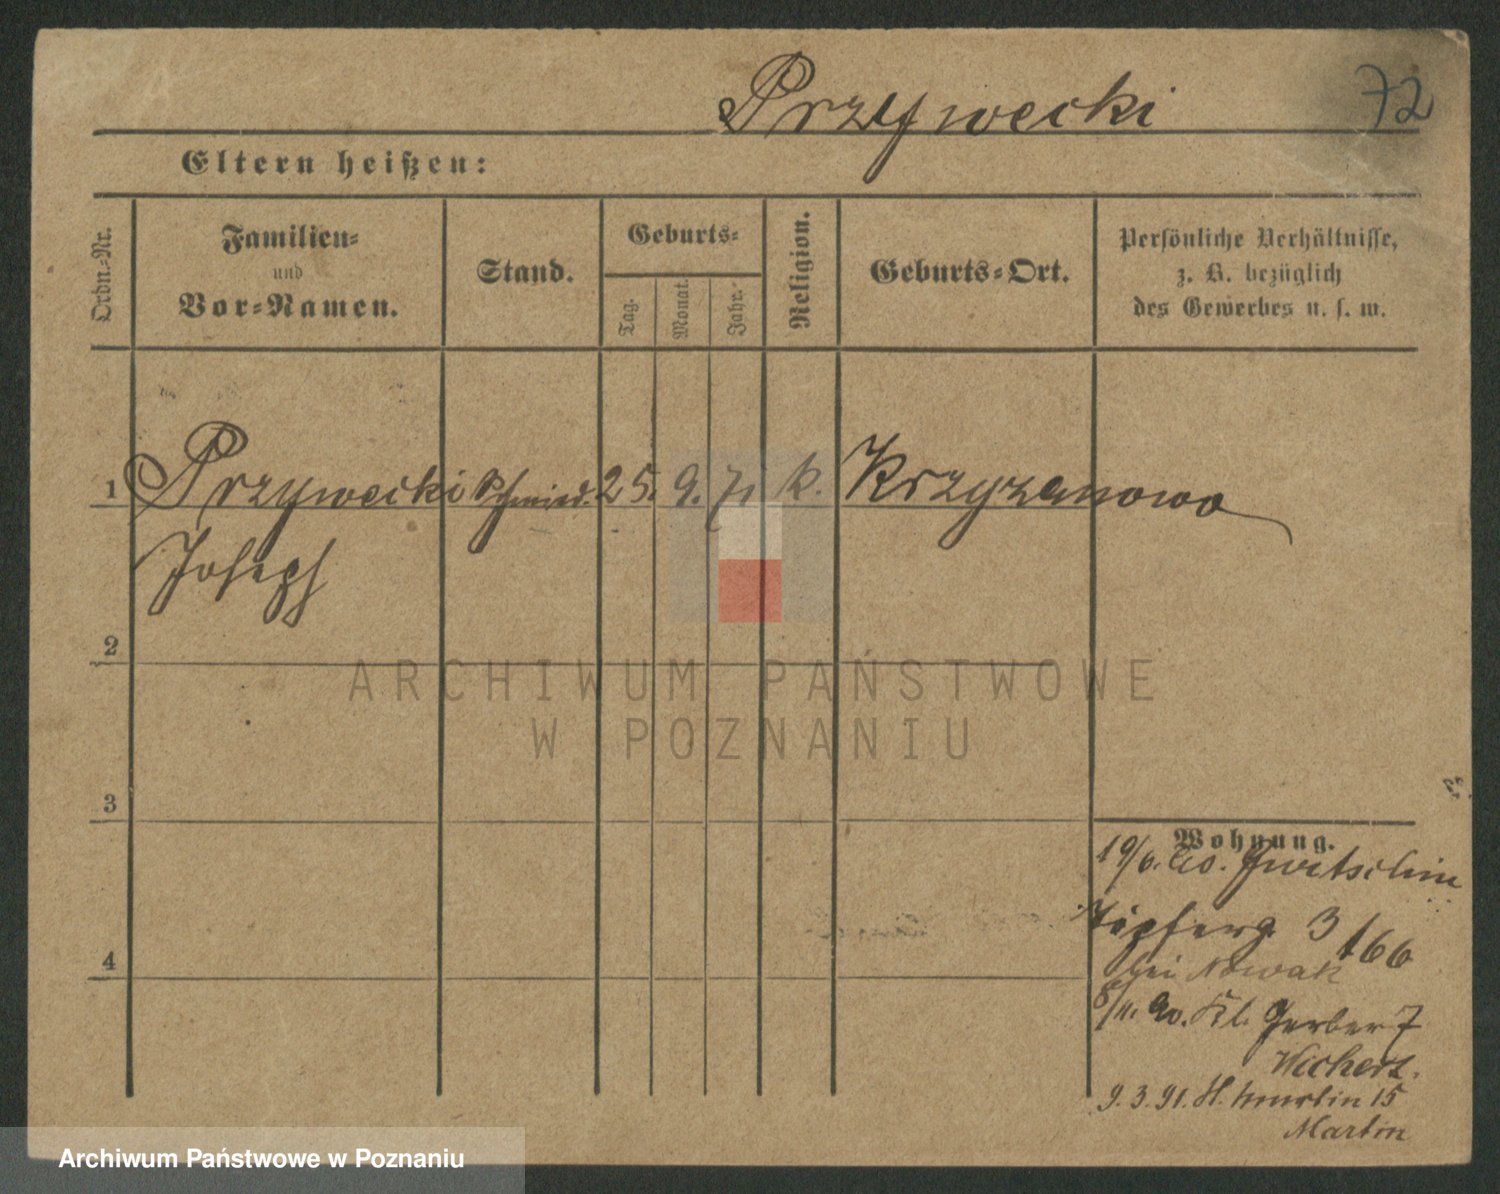 Przywecki 72
Eltern heißen:
Ordn.-Nr.
Familien-
und
Vor-Namen.
Stand.
Geburts-
Tag.
Monat.
Jahr.
Religion.
Geburts-Ort.
Persönliche Verhältnisse,
z. B. bezüglich
des Gewerbes u. s. w.
1 Przywecki Schmied. 25. 9. 71 k. Krzyzanowo
Joseph
2
3
4
Wohnung.
19/6. 90. Jurtschin
Töpferg. 3 166
bei Nowak
8/11. 90. Kl. Gerber 7
Wichert.
9. 3. 91. St. Martin 15
Martin
ARCHIWUM PAŃSTWOWE
W POZNANIU
Archiwum Państwowe w Poznaniu